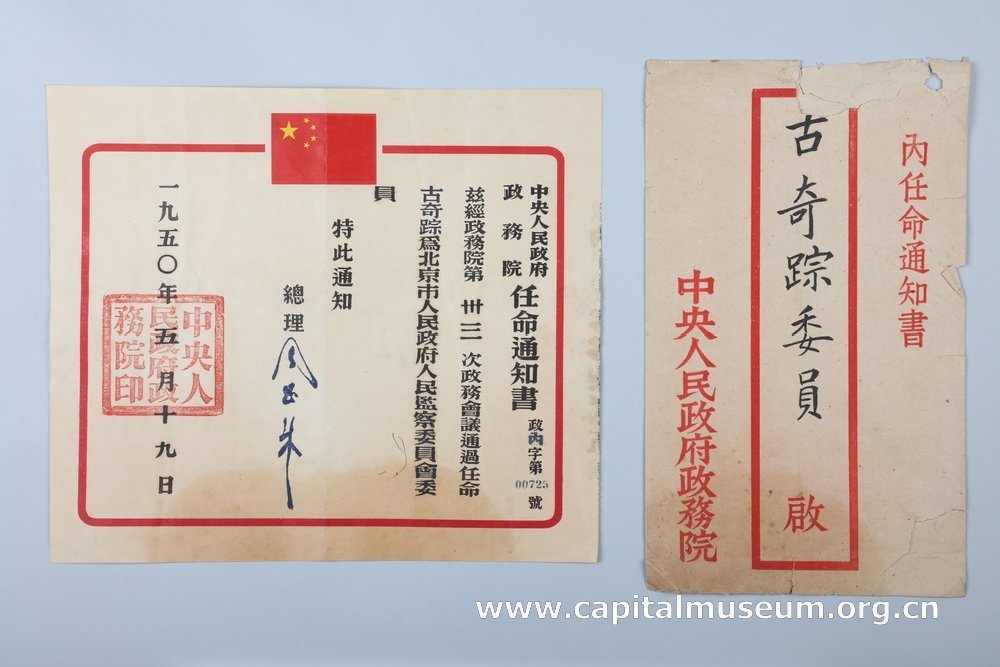 中央人民政府
政務院
任命通知書
政內字第00725號
茲經政務院第卅三次政務會議通過任命
古奇踪爲北京市人民政府人民監察委員會委
員
特此通知
總理 周恩來
一九五〇年五月十九日
中央人
民政府政
務院印
內任命通知書
古奇踪委員 啟
中央人民政府政務院
www.capitalmuseum.org.cn